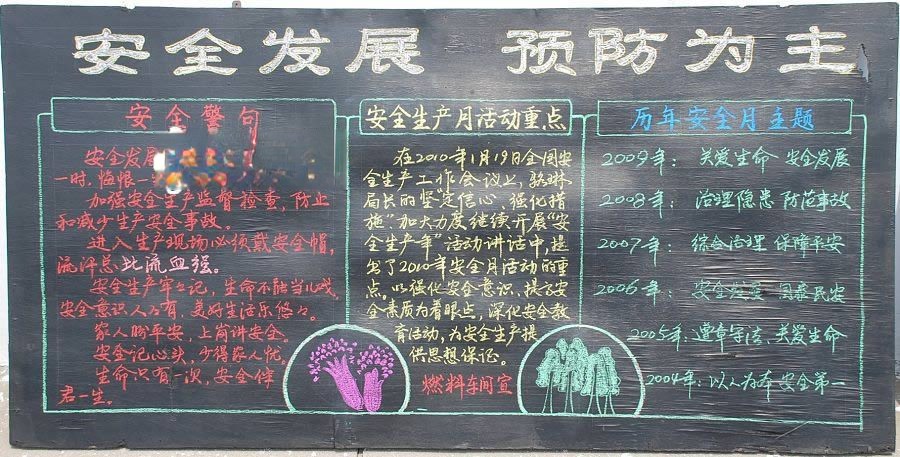 安全发展 预防为主
安全警句
安全发展
一时，悔恨一
加强安全生产监督检查，防止
和减少生产安全事故。
进入生产现场必须戴安全帽，
流汗总比流血强。
安全生产牢牢记，生命不能当儿戏
安全意识人人有，美好生活乐悠々。
家人盼平安，上岗讲安全。
安全记心头，少得家人忧。
生命只有一次，安全伴
君一生。
安全生产月活动重点
在2010年1月19日全国安
全生产工作会议上，骆琳
局长的坚"定信心、强化措
施"加大力度继续开展"安
全生产年"活动讲话中，提
出了2010年安全月活动的重
点。以强化安全意识、提高安
全素质为着眼点，深化安全教
育活动，为安全生产提
供思想保证。
燃料车间宣
历年安全月主题
2009年：关爱生命 安全发展
2008年：治理隐患 防范事故
2007年：综合治理 保障平安
2006年：安全发展 国泰民安
2005年：遵章守法、关爱生命
2004年：以人为本 安全第一